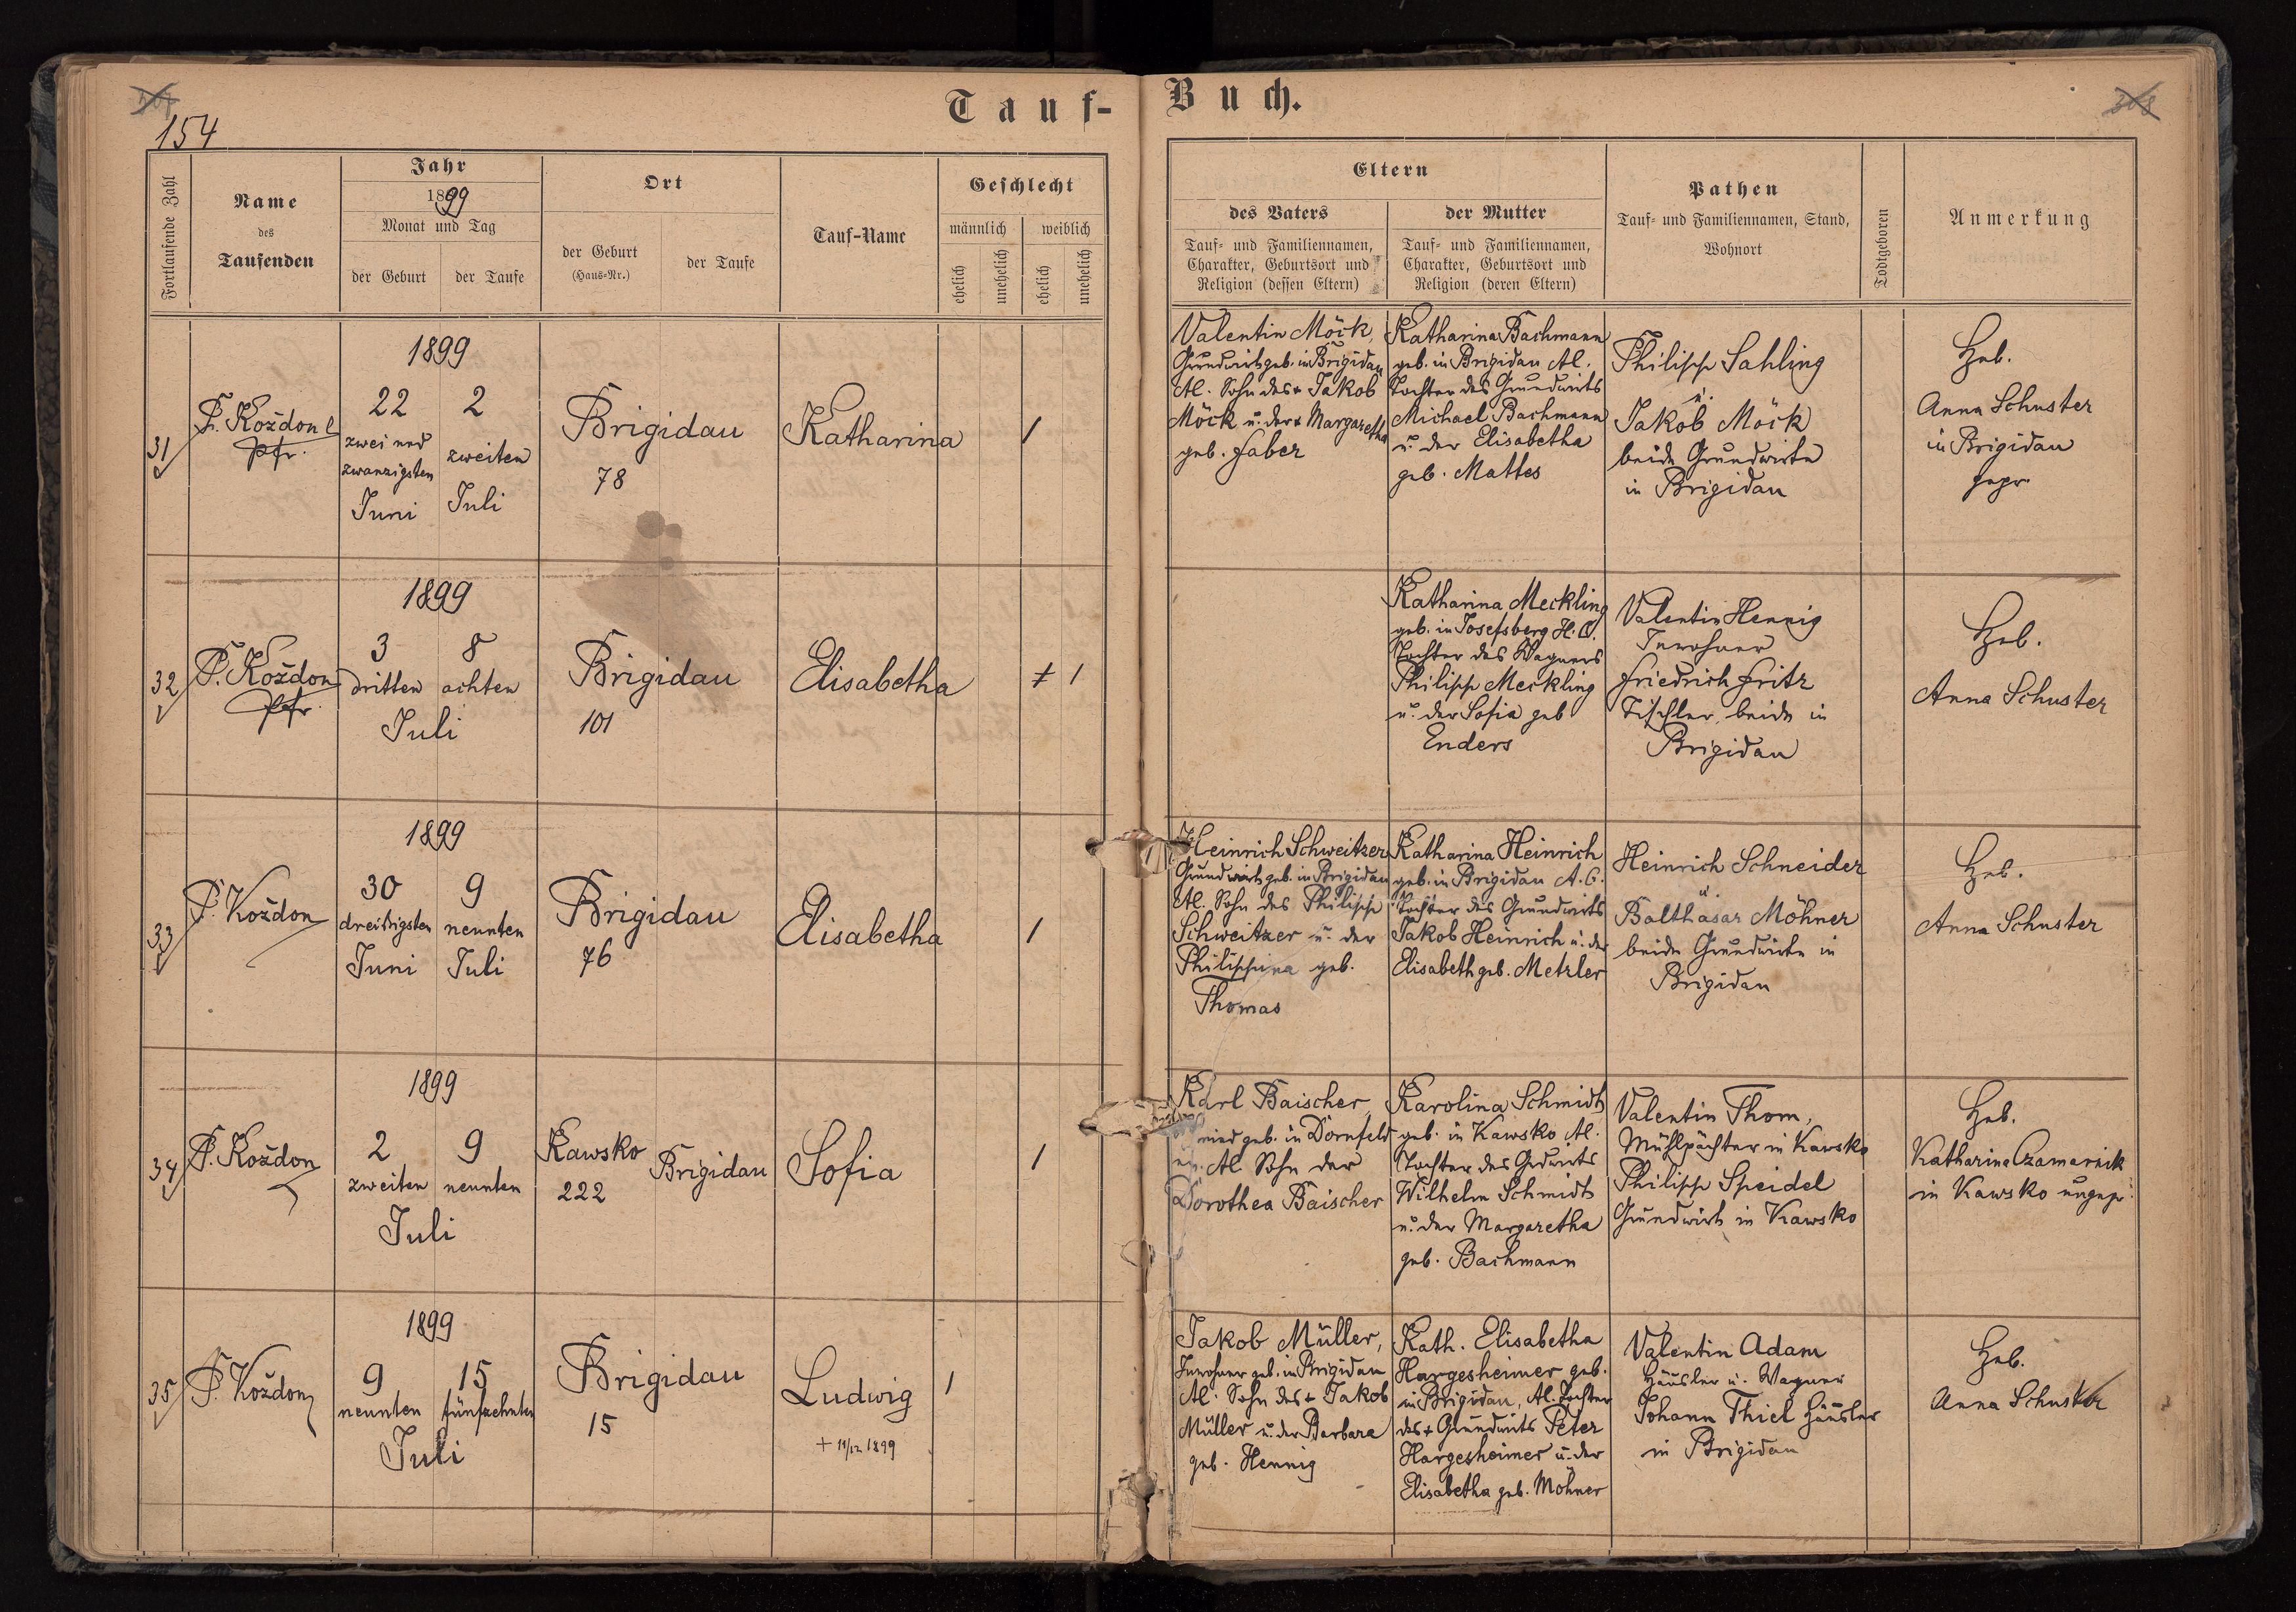 154
Tauf-
Buch.
Fortlaufende Zahl
Name
des
Taufenden
Jahr
1899
Monat und Tag
der Geburt
der Taufe
Ort
der Geburt
(Haus-Nr.)
der Taufe
Tauf-Name
Geschlecht
männlich
weiblich
ehelich
unehelich
ehelich
unehelich
Eltern
des Vaters
Tauf- und Familiennamen,
Charakter, Geburtsort und
Religion (dessen Eltern)
der Mutter
Tauf- und Familiennamen,
Charakter, Geburtsort und
Religion (deren Eltern)
Pathen
Tauf- und Familiennamen, Stand,
Wohnort
Todtgeboren
Anmerkung
31
P. Koždon
Pfr.
1899
22
zwei und
zwanzigsten
Juni
2
zweiten
Juli
Brigidau
78
Katharina
1
Valentin Möck,
Grundwirt geb. in Brigidau
Al. Sohn des + Jakob
Möck u. der + Margaretha
geb. Faber
Katharina Bachmann
geb. in Brigidau Al.
Tochter des Grundwirts
Michael Bachmann
u. der Elisabetha
geb. Mattes
Philipp Sahling
u.
Jakob Möck
beide Grundwirte
in Brigidau
Heb.
Anna Schuster
in Brigidau
gepr.
32
P. Koždon
Pfr.
1899
3
dritten
8
achten
Juli
Brigidau
101
Elisabetha
1
Katharina Meckling
geb. in Josefsberg H. C.
Tochter des Wagners
Philipp Meckling
u. der Sofia geb
Enders
Valentin Hennig
Inwohner
Friedrich Fritz
Tischler, beide in
Brigidau
Heb.
Anna Schuster
33
P. Koždon
1899
30
dreißigsten
Juni
9
neunten
Juli
Brigidau
76
Elisabetha
1
Heinrich Schweitzer
Grundwirt geb. in Brigidau
Al. Sohn des Philipp
Schweitzer u. der
Philippina geb.
Thomas
Katharina Heinrich
geb. in Brigidau A. C.
Tochter des Grundwirts
Jakob Heinrich u. der
Elisabeth geb. Metzler
Heinrich Schneider
u.
Balthasar Möhner
beide Grundwirte in
Brigidau
Heb.
Anna Schuster
34
P. Koždon
1899
2
zweiten
9
neunten
Juli
Kawsko
222
Brigidau
Sofia
1
Karl Baischer,
geb. in Dornfeld
Al Sohn der
Dorothea Baischer
Karolina Schmidt
geb. in Kawsko Al.
Tochter des Gdwirts
Wilhelm Schmidt
u. der Margaretha
geb. Bachmann
Valentin Thom,
Mühlpächter in Kawsko
Philipp Speidel
Grundwirt in Kawsko
Heb.
Katharina Czamarnik
in Kawsko ungepr.
35
P. Koždon
1899
9
neunten
15
fünfzehnten
Juli
Brigidau
15
Ludwig
+ 11/12 1899
1
Jakob Müller,
Inwohner geb. in Brigidau
Al. Sohn des + Jakob
Müller u. der Barbara
geb. Hennig
Kath. Elisabetha
Hargesheimer geb.
in Brigidau, Al. Tochter
des + Grundwirts Peter
Hargesheimer u. der
Elisabetha geb. Möhner
Valentin Adam
Häusler u. Wagner
Johann Thiel Häusler
in Brigidau
Heb.
Anna Schuster